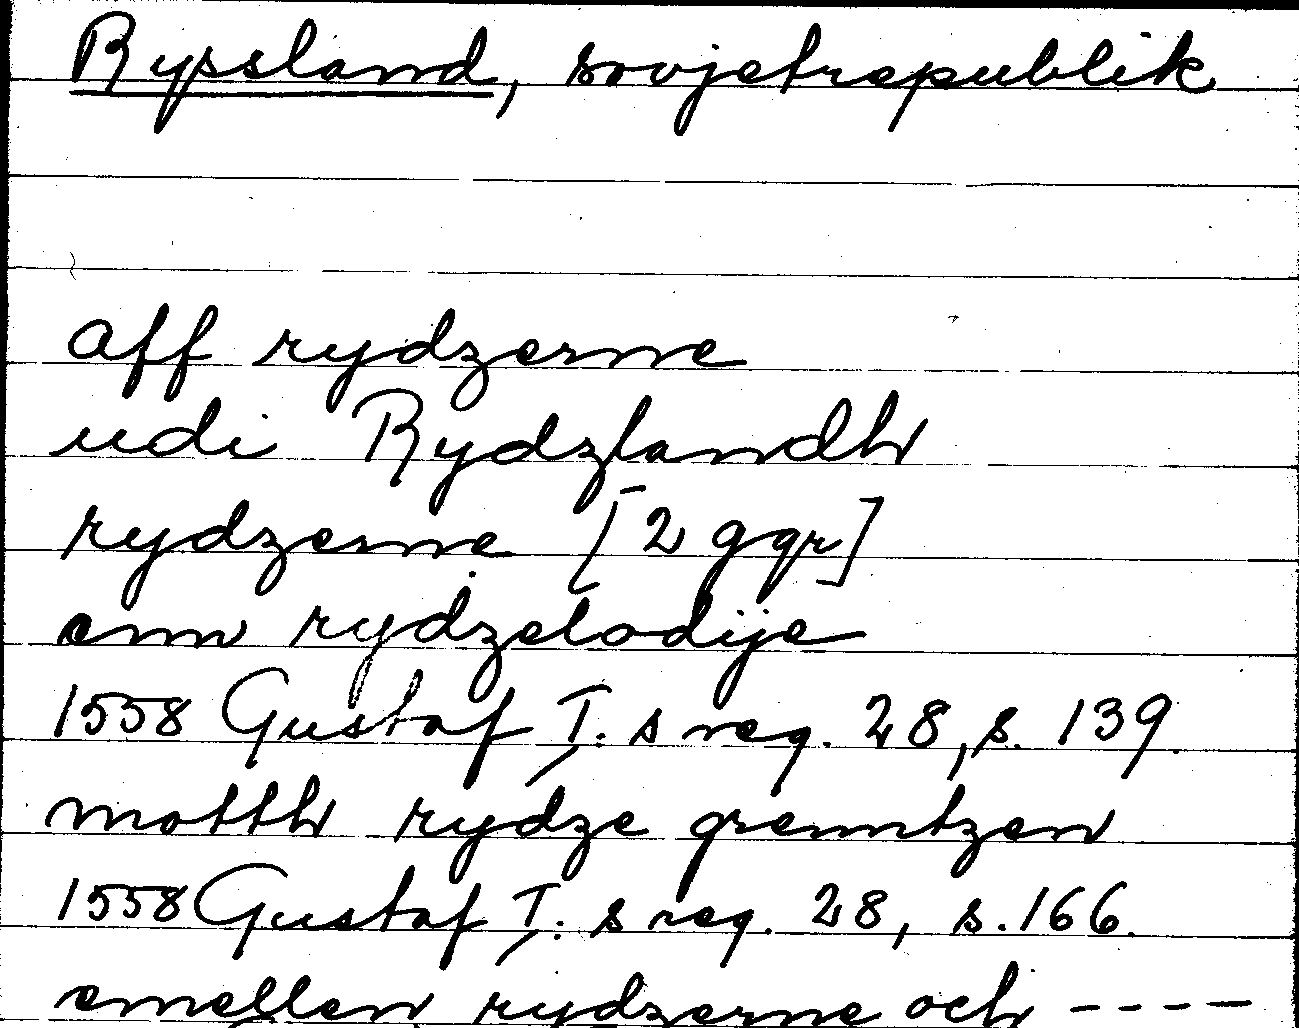 Ryssland, sovjetrepublik
aff rydzerne
udi Rydzlandh
rydzerne [2 ggr]
enn rydzelodije
1558 Gustaf I:s reg. 28, s. 139.
motth rydze grenntzen
1558 Gustaf I:s reg. 28, s. 166.
emellen rydzerne och ----